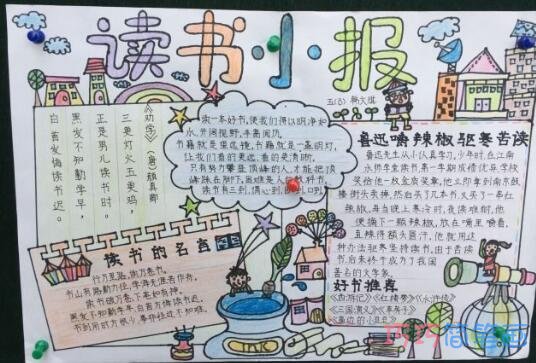 读书小报
五(3) 杨文琪
《劝学》 (唐)颜真卿
三更灯火五更鸡，
正是男儿读书时。
黑发不知勤学早，
白首方悔读书迟。
读一本好书，使我们得以明净如
水，开阔视野，丰富阅历。
书籍就是望远镜，书籍就是一盏明灯，
让我们看的更远、看的更清晰。
只有努力攀登顶峰的人，才能把顶
峰踩在脚下，困难是人的教科书。
读书有三到，谓心到，眼到，口到
鲁迅嚼辣椒驱寒苦读
鲁迅先生从小认真学习。少年时，在江南
水师学堂读书，第一学期成绩优异，学校
奖给他一枚金质奖章。他立即拿到南京鼓
楼街头卖掉，然后买了几本书，又买了一串红
辣椒。每当晚上寒冷时，夜读难耐，他
便摘下一颗辣椒，放在嘴里嚼着，
直辣得额头冒汗。他就用这
种办法驱寒坚持读书。由于苦读
书，后来终于成为了我国
著名的文学家。
读书的名言
行万里路，读万卷书。
书山有路勤为径，学海无涯苦作舟。
读书破万卷，下笔如有神。
黑发不知勤学早，白首方悔读书迟。
书到用时方恨少，事非经过不知难。
好书推荐
《西游记》《红楼梦》《水浒传》
《三国演义》《草房子》
INK